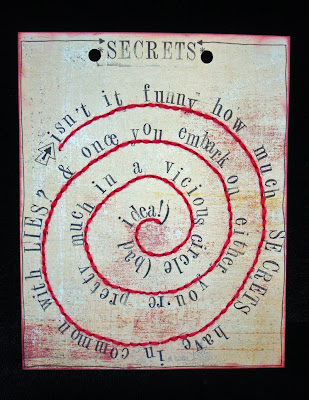 SECRETS
isn't it funny how much SECRETS have in common with LIES? & once you embark on either you're pretty much in a vicious circle (bad idea!)